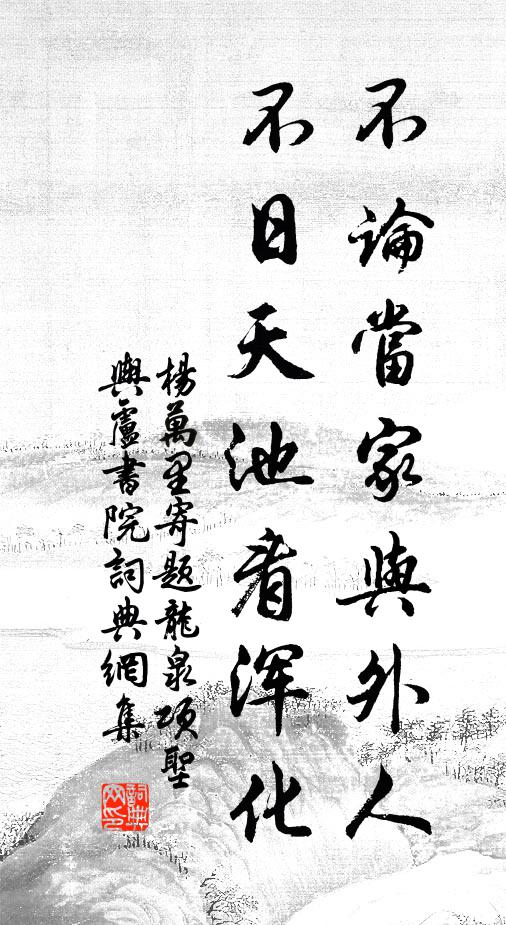 不論當家與外人
不日天池看浑化
楊萬里寄題龍泉項聖
與盧書院詞典網集